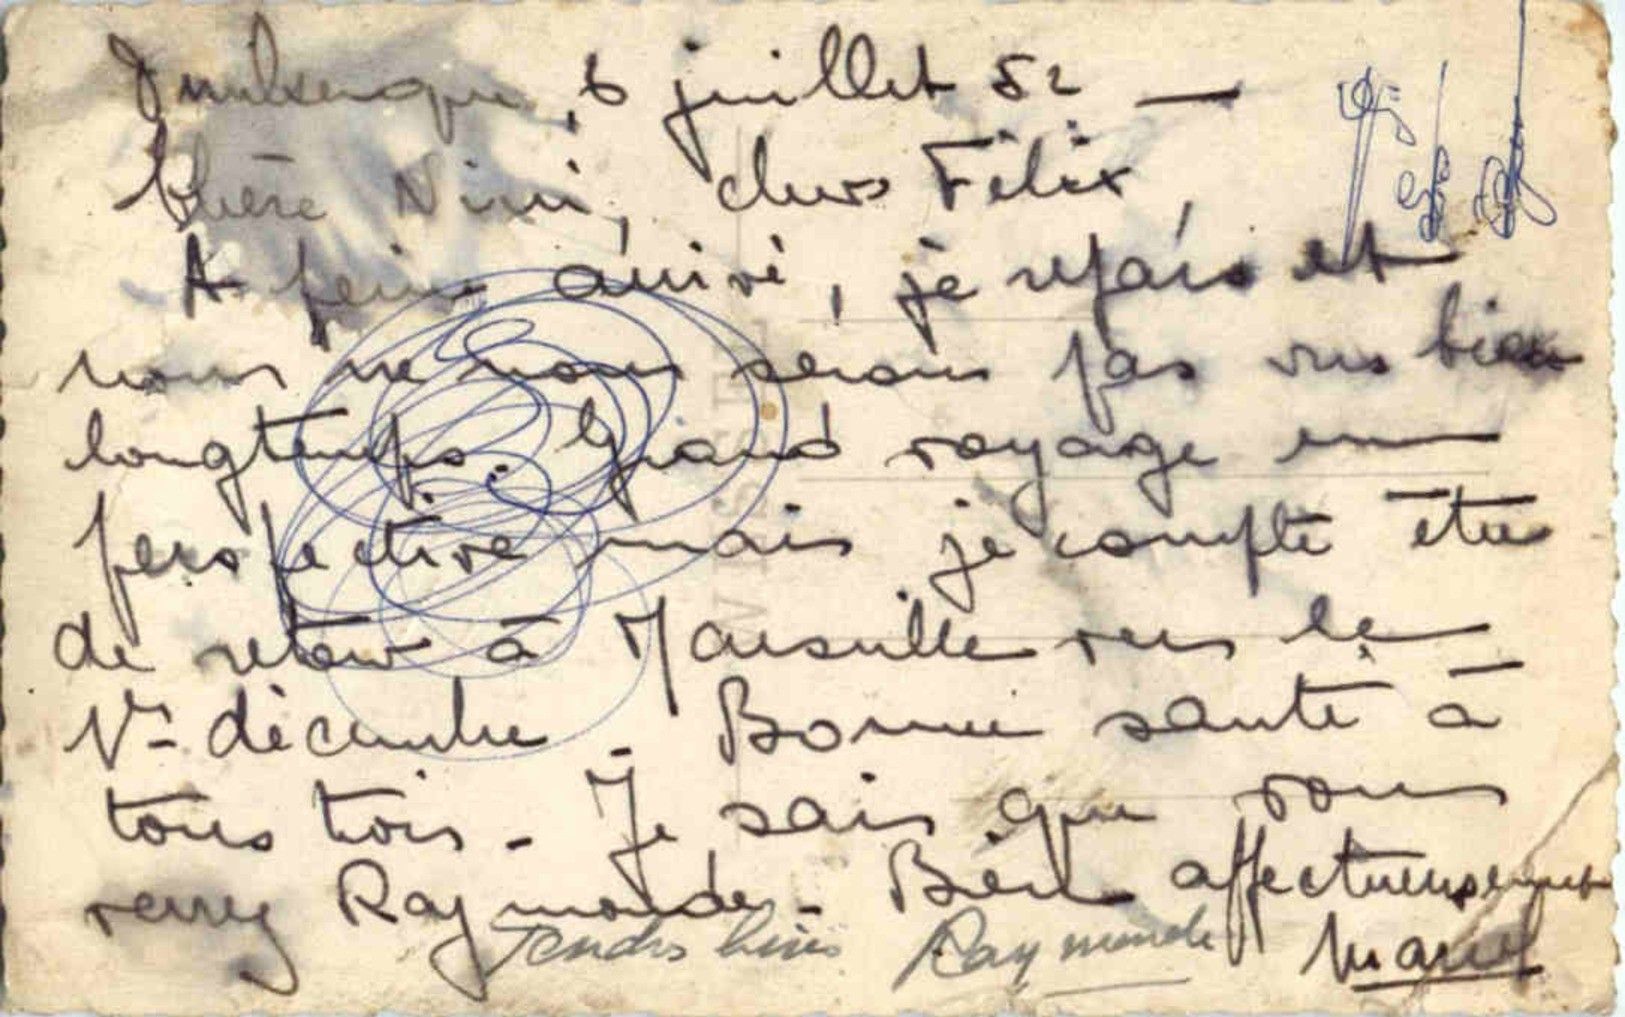 Dunkerque, 6 juillet 52 —
Chère Nini, chers Félix,
A peine arrivé, je repars et
nous ne nous serons pas vus bien
longtemps. Grand voyage en
perspective mais je compte être
de retour à Marseille vers le
1er décembre - Bonne santé à
tous trois - Je sais que vous
verrez Raymonde - Bien affectueusement
Tendres bises Raymonde Marcel